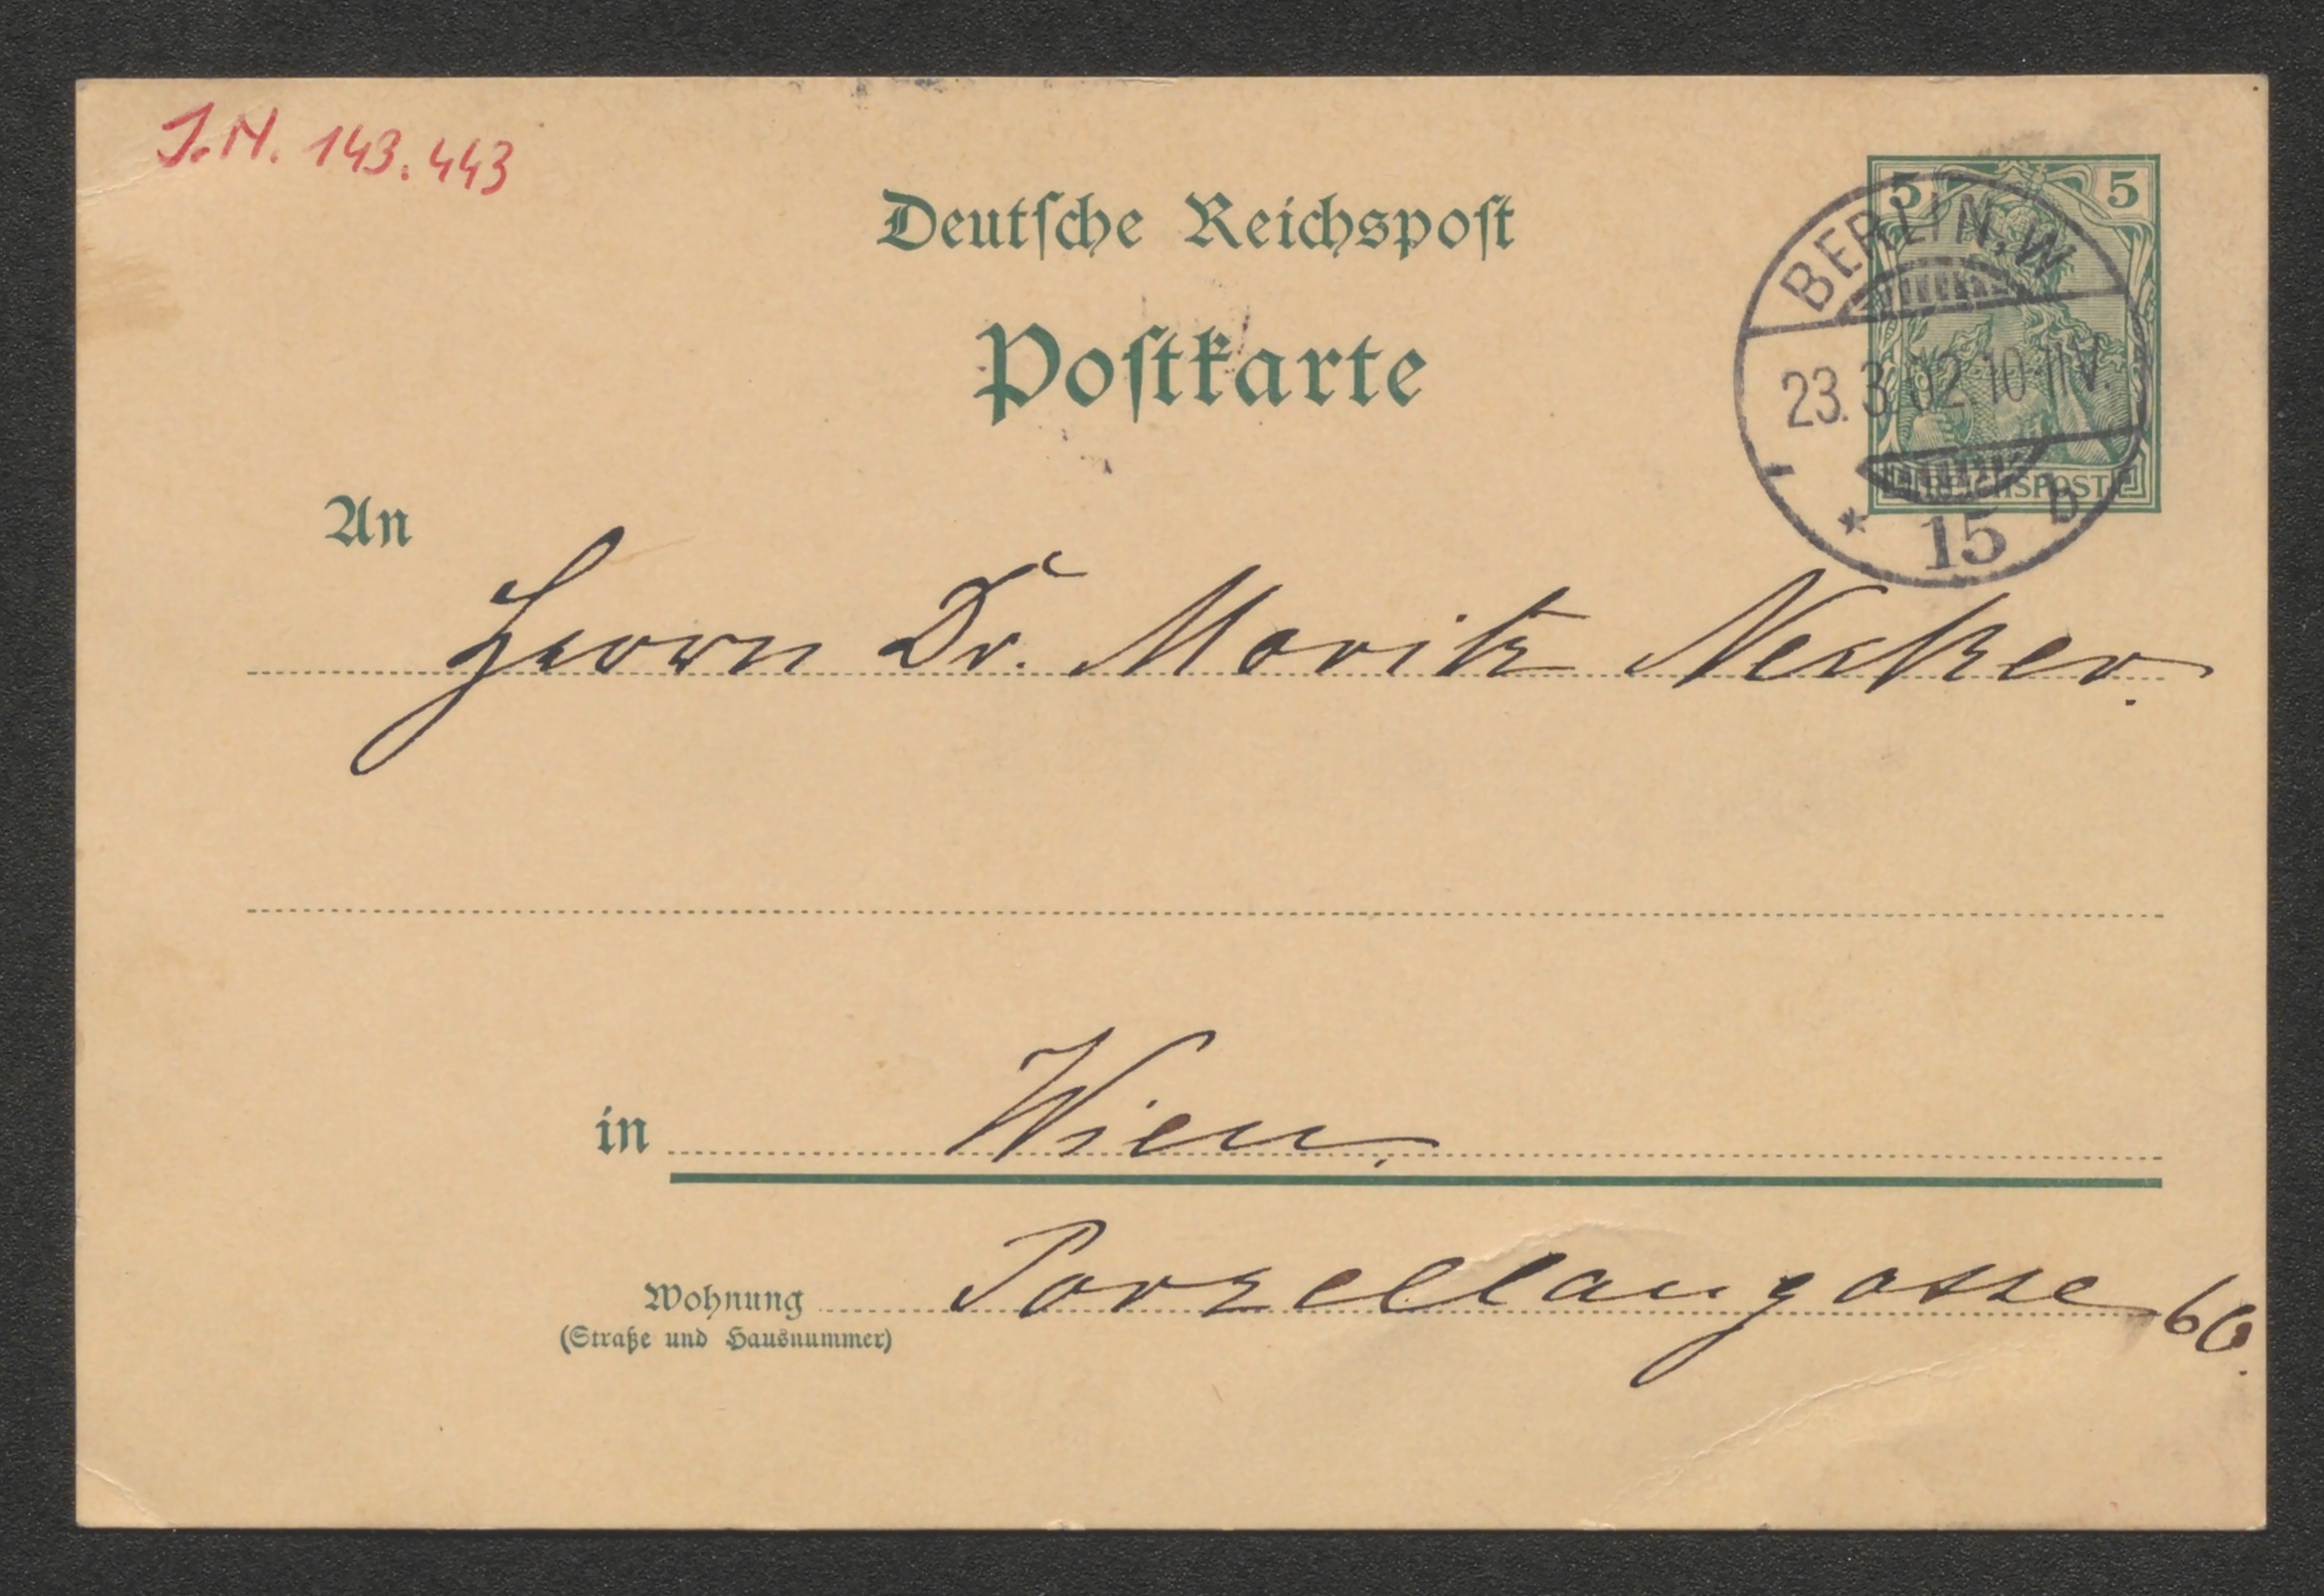 J.N. 143.443
Deutsche Reichspost
Postkarte
5 5
REICHSPOST
BERLIN, W
23.3.02.10-11V.
* 15 b
An
Herrn Dr. Moritz Necker.
in Wien.
Wohnung Porzellangasse 60.
(Straße und Hausnummer)